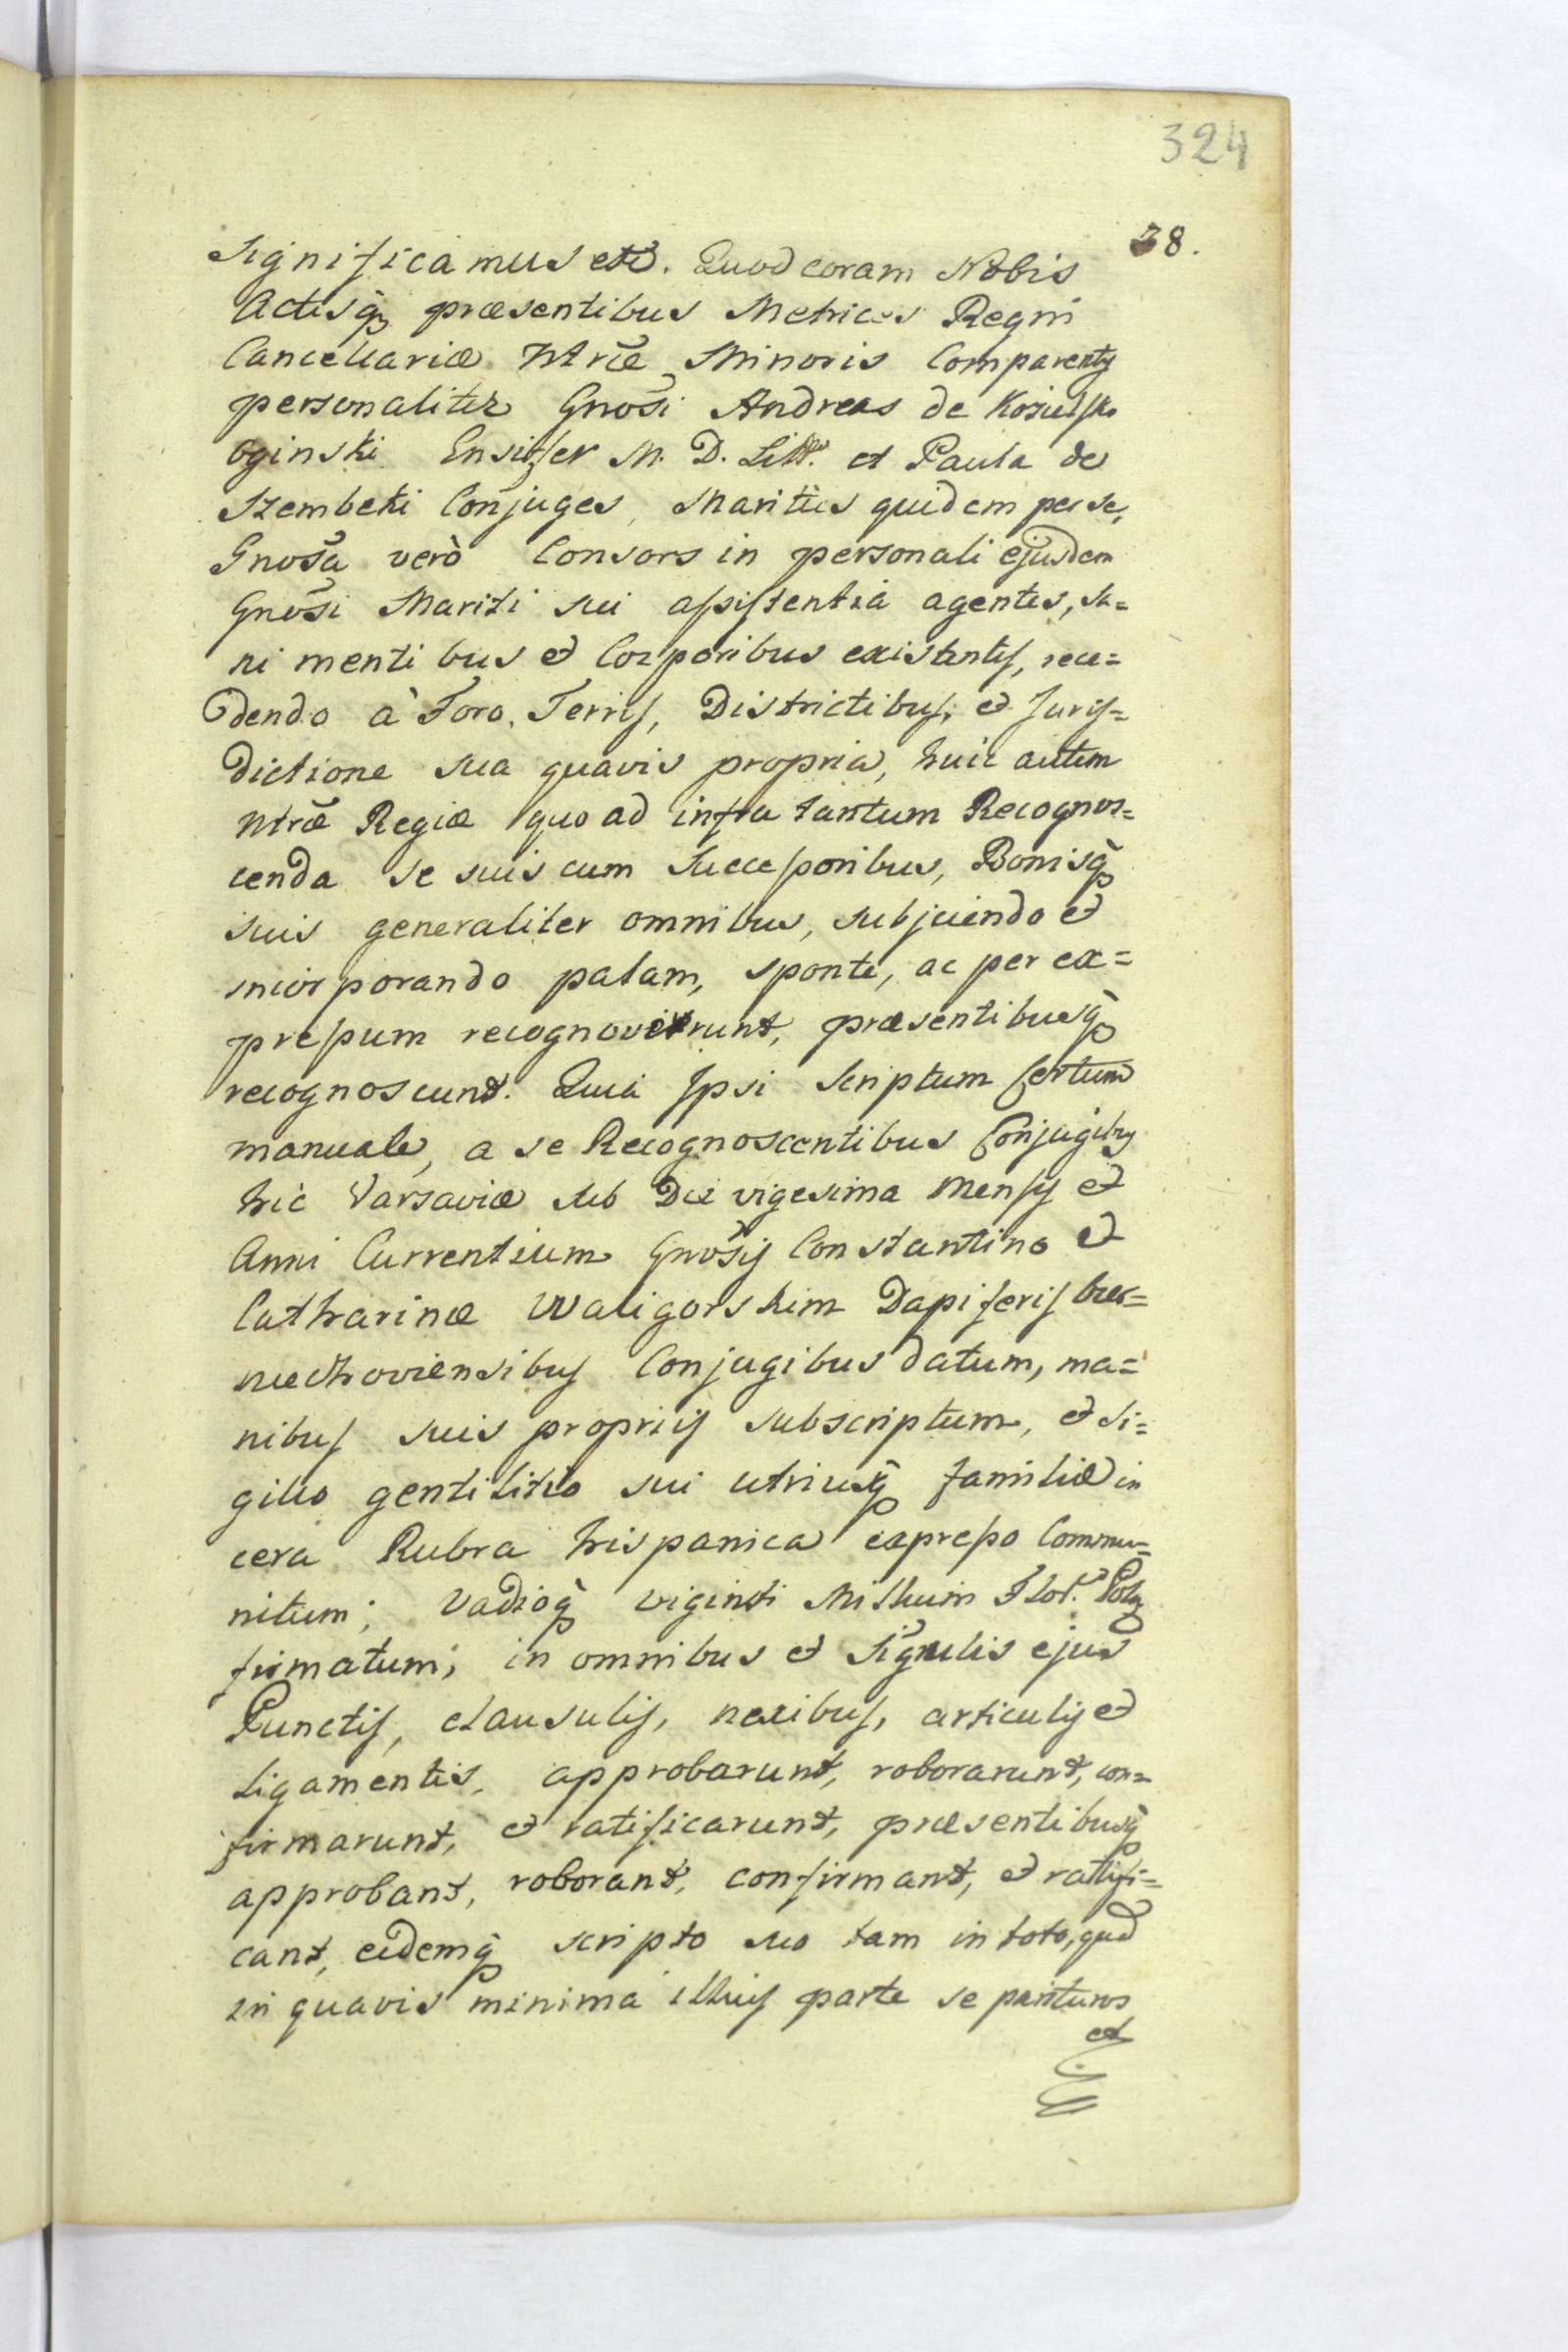 324
38.
Significamus etc. Quod coram Nobis
Actisq; præsentibus Metrices Regni
Cancellariæ Ntræ Minoris Comparentes
personaliter Gnosi Andreas de Kozielsko
Oginski Ensifer M. D. Litt. et Paula de
Szembeki Conjuges, Maritus quidem per se,
Gnosa verò Consors in personali ejusdem
Gnosi Mariti sui assistentiâ agentes, sa=
ni mentibus et Corporibus existentes, rece=
dendo à Foro, Terris, Districtibus, et Juris=
dictione sua quavis propria, huic autem
Ntræ Regiæ quo ad infra tantum Recognos=
cenda se suis cum Successoribus, Bonisq;
suis generaliter omnibus, subjiciendo et
incorporando palam, sponte, ac per ex=
pressum recognoverunt, præsentibusq;
recognoscunt. Quia Ipsi Scriptum certum
manuale, a se Recognoscentibus Conjugibus
hic Varsaviæ sub Die vigesima Mensis et
Anni Currentium Gnosis Constantino et
Catharinæ Waligorskim Dapiferis
Conjugibus datum, ma=
nibus suis proprijs subscriptum, et si=
gillo gentilitio sui utriusq; familiæ in
cera Rubra hispanica expresso Commu=
nitum; Vadioq; viginti Millium Flor. Polz
firmatum; in omnibus et Signulis ejus
Punctis, clausulis, nexibus, articulis et
Ligamentis, approbarunt, roborarunt, con=
firmarunt, et ratificarunt, præsentibusq;
approbant, roborant, confirmant, et ratifi=
cant, eidemq; scripto suo tam in toto, qud
in quavis minima illius parte se parituros
et